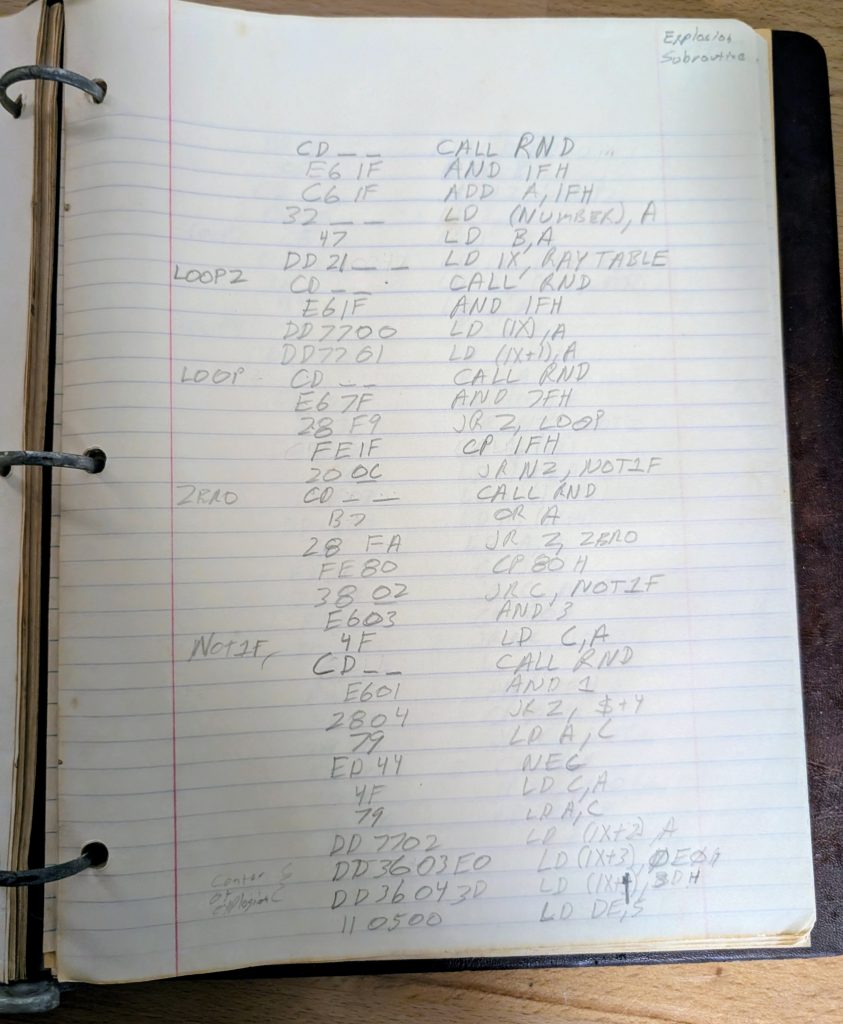 Explosion
Subroutine.
CD _ _ CALL RND
E6 1F AND 1FH
C6 1F ADD A, 1FH
32 _ _ LD (NUMBER), A
47 LD B,A
DD 21 _ _ LD IX, RAY TABLE
LOOP2 CD _ _ CALL RND
E61F AND 1FH
DD7700 LD (IX),A
DD7701 LD (IX+1),A
LOOP CD _ _ CALL RND
E6 7F AND 7FH
28 F9 JR Z, LOOP
FE1F CP 1FH
20 0C JR NZ, NOT1F
ZERO CD _ _ CALL RND
B7 OR A
28 FA JR Z, ZERO
FE80 CP 80H
38 02 JR C, NOT1F
E603 AND 3
NOT1F, 4F LD C,A
CD _ _ CALL RND
E601 AND 1
2804 JR Z, $+4
79 LD A, C
ED 44 NEG
4F LD C,A
79 LD A,C
DD 7702 LD (IX+2), A
DD3603E0 LD (IX+3), 0E0H
Center of explosion { DD36043D LD (IX+4), 3DH
11 0500 LD DE,5